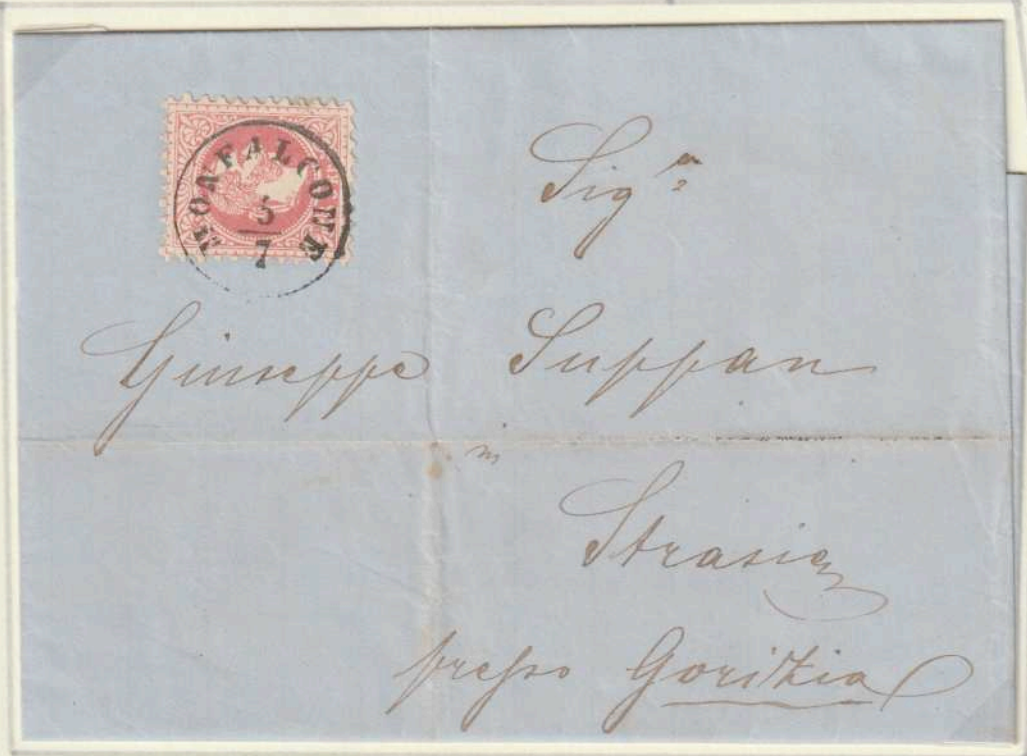 MONFALCONE
5
7
Sigʳ
Giuseppe Suppan
in
Strasig
presso Gorizia